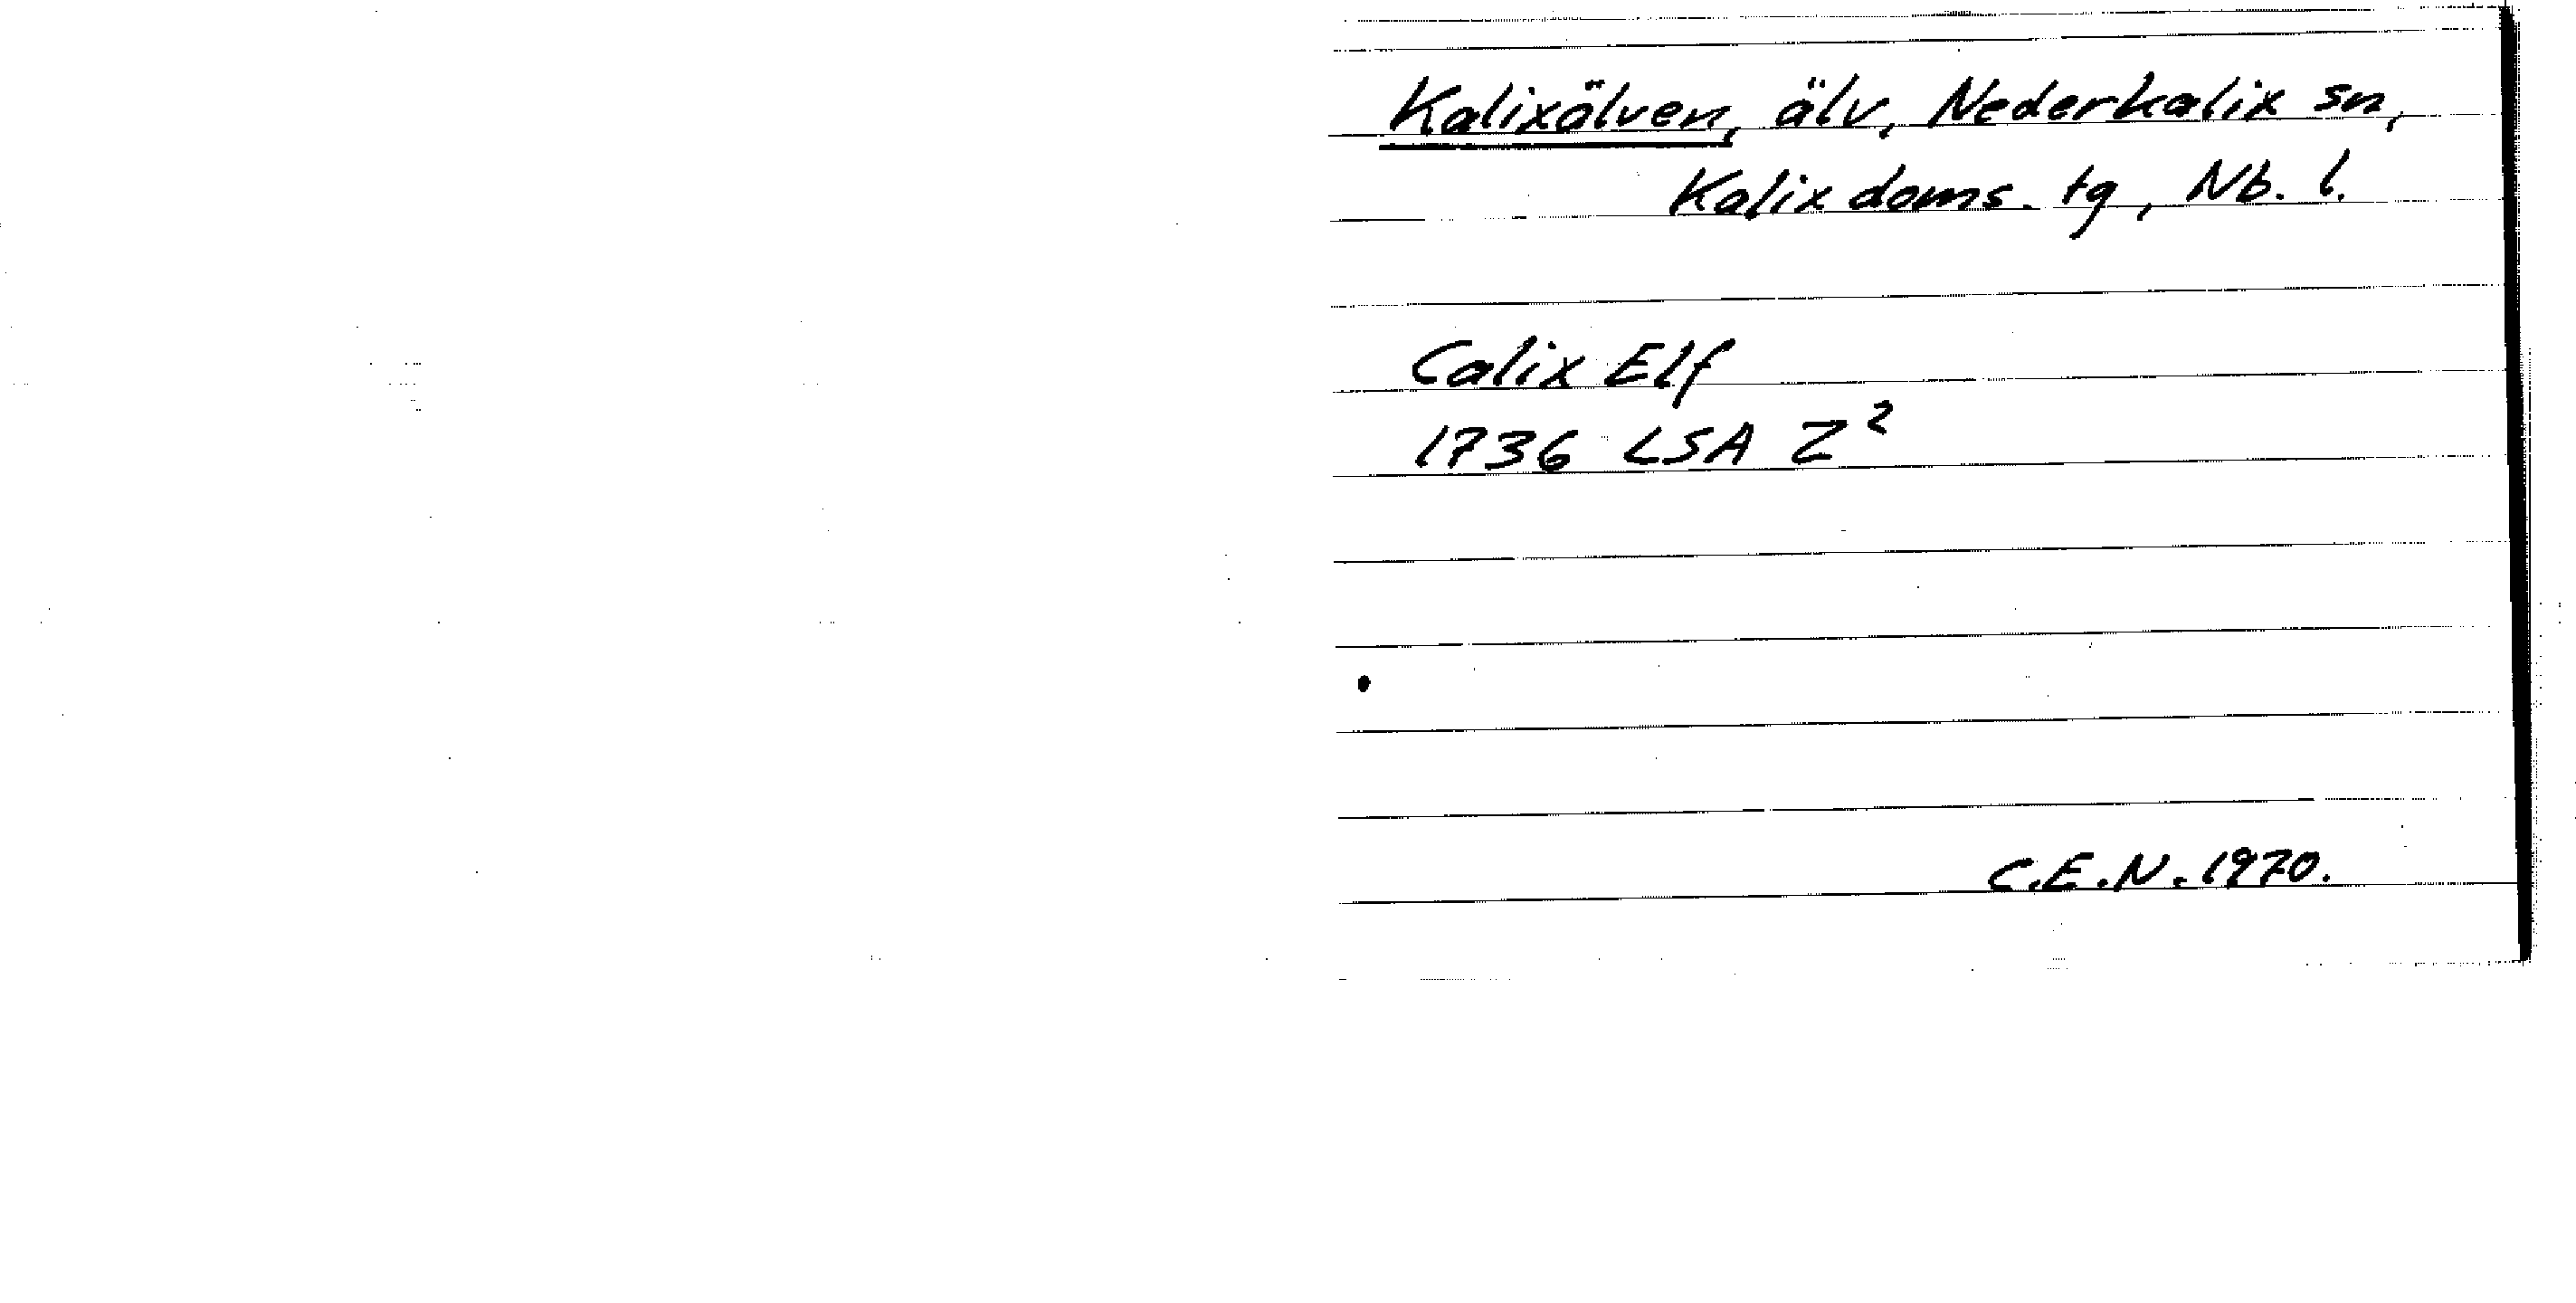 Kalixälven, älv, Nederkalix sn,
Kalix doms. tg, Nb. l.
Calix Elf
1736 LSA Z²
C.E.N. 1970.